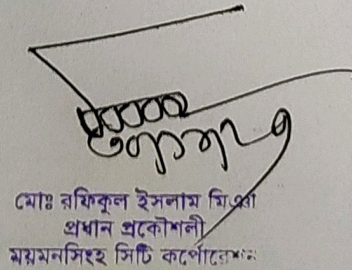 মোঃ রফিকুল ইসলাম মিঞা
প্রধান প্রকৌশলী
ময়মনসিংহ সিটি কর্পোরেশন